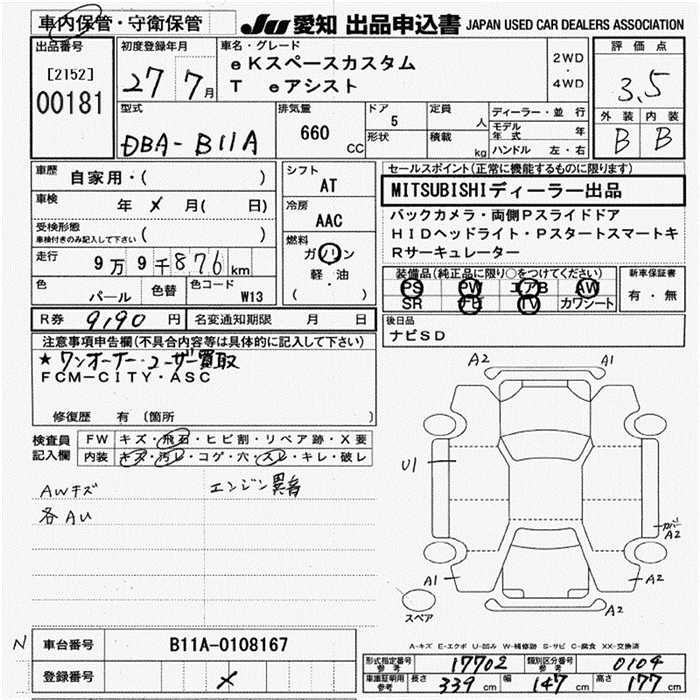 車内保管・守衛保管 JU 愛知 出品申込書 JAPAN USED CAR DEALERS ASSOCIATION
出品番号 [2152] 00181
初度登録年月 27 7月
車名・グレード eKスペースカスタム T eアシスト
2WD・4WD
評価点 3.5
外装 B 内装 B
型式 DBA-B11A
排気量 660 CC
ドア 5 形状
定員 人 積載 kg
ディーラー・並行
モデル年式 年
ハンドル 左・右
車歴 自家用・( )
車検 年 メ 月( 日)
受検形態 車検付きのみ記入して下さい ( )
走行 9万9千876km
色 パール 色替 色コード W13
シフト AT
冷房 AAC
燃料 ガソリン 軽・油 ( )
セールスポイント(正常に機能するものに限ります)
MITSUBISHIディーラー出品
バックカメラ・両側Pスライドドア
HIDヘッドライト・Pスタートスマートキ
Rサーキュレーター
装備品(純正品に限り○をつけてください)
PS PW エアB AW
SR ナビ TV カワシート
新車保証書 有・無
R券 9,190 円 名変通知期限 月 日
後日品 ナビSD
注意事項申告欄(不具合内容等は具体的に記入して下さい)
★ワンオーナー・ユーザー買取
FCM-CITY・ASC
修復歴 有 〔箇所 〕
検査員記入欄
FW キズ・飛石・ヒビ割・リペア跡・X要
内装 キズ・汚レ・コゲ・穴・スレ・キレ・破レ
AWキズ エンジン異音
各AU
A2 A1
U1
カバー A2
A1 A2
スペア
A2
A-キズ E-エクボ U-凹み W-補修跡 S-サビ C-腐食 XX-交換済
N 車台番号 B11A-0108167
登録番号 メ
形式指定番号 参考 17702 類別区分番号 参考 0104
車庫証明用 参考 長さ 339 cm 幅 147 cm 高さ 177 cm